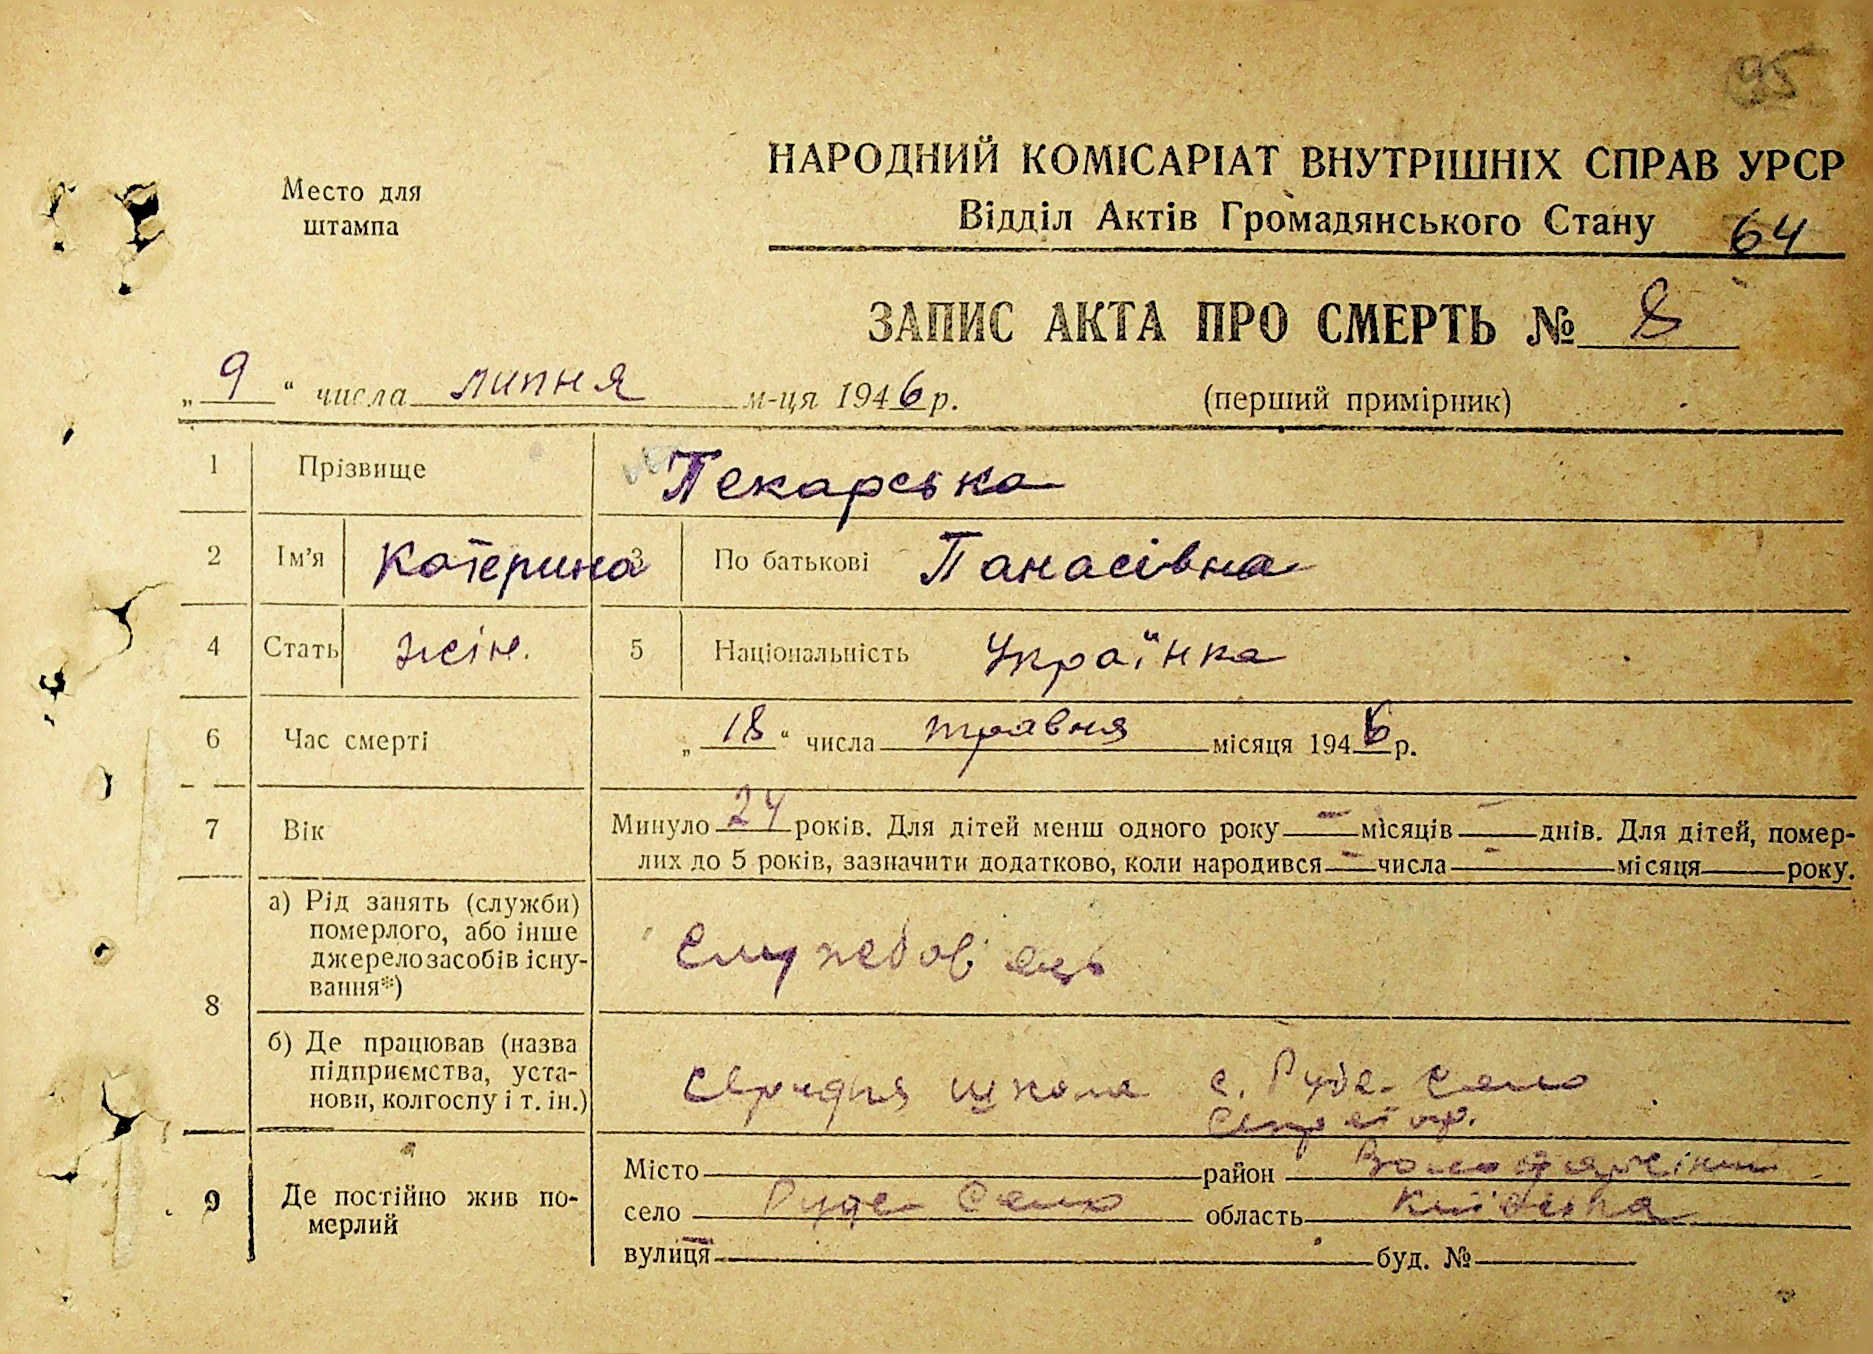 95
Место для
штампа
НАРОДНИЙ КОМІСАРІАТ ВНУТРІШНІХ СПРАВ УРСР
Відділ Актів Громадянського Стану 64
ЗАПИС АКТА ПРО СМЕРТЬ № 8
„ 9 “ числа липня м-ця 1946 р. (перший примірник)
1 Прізвище Пекарська
2 Ім'я Катерина 3 По батькові Панасівна
4 Стать жін. 5 Національність Українка
6 Час смерті „ 18 “ числа травня місяця 1946 р.
7 Вік Минуло 24 років. Для дітей менш одного року — місяців — днів. Для дітей, помер-
лих до 5 років, зазначити додатково, коли народився — числа — місяця року.
8 а) Рід занять (служби)
померлого, або інше
джерело засобів існу-
вання*) службовець
б) Де працював (назва
підприємства, уста-
нови, колгоспу і т. ін.) середня школа с. Руде-Село
Секретар.
9 Де постійно жив по-
мерлий
Місто район Володарський
село Руде Село область Київська
вулиця буд. №